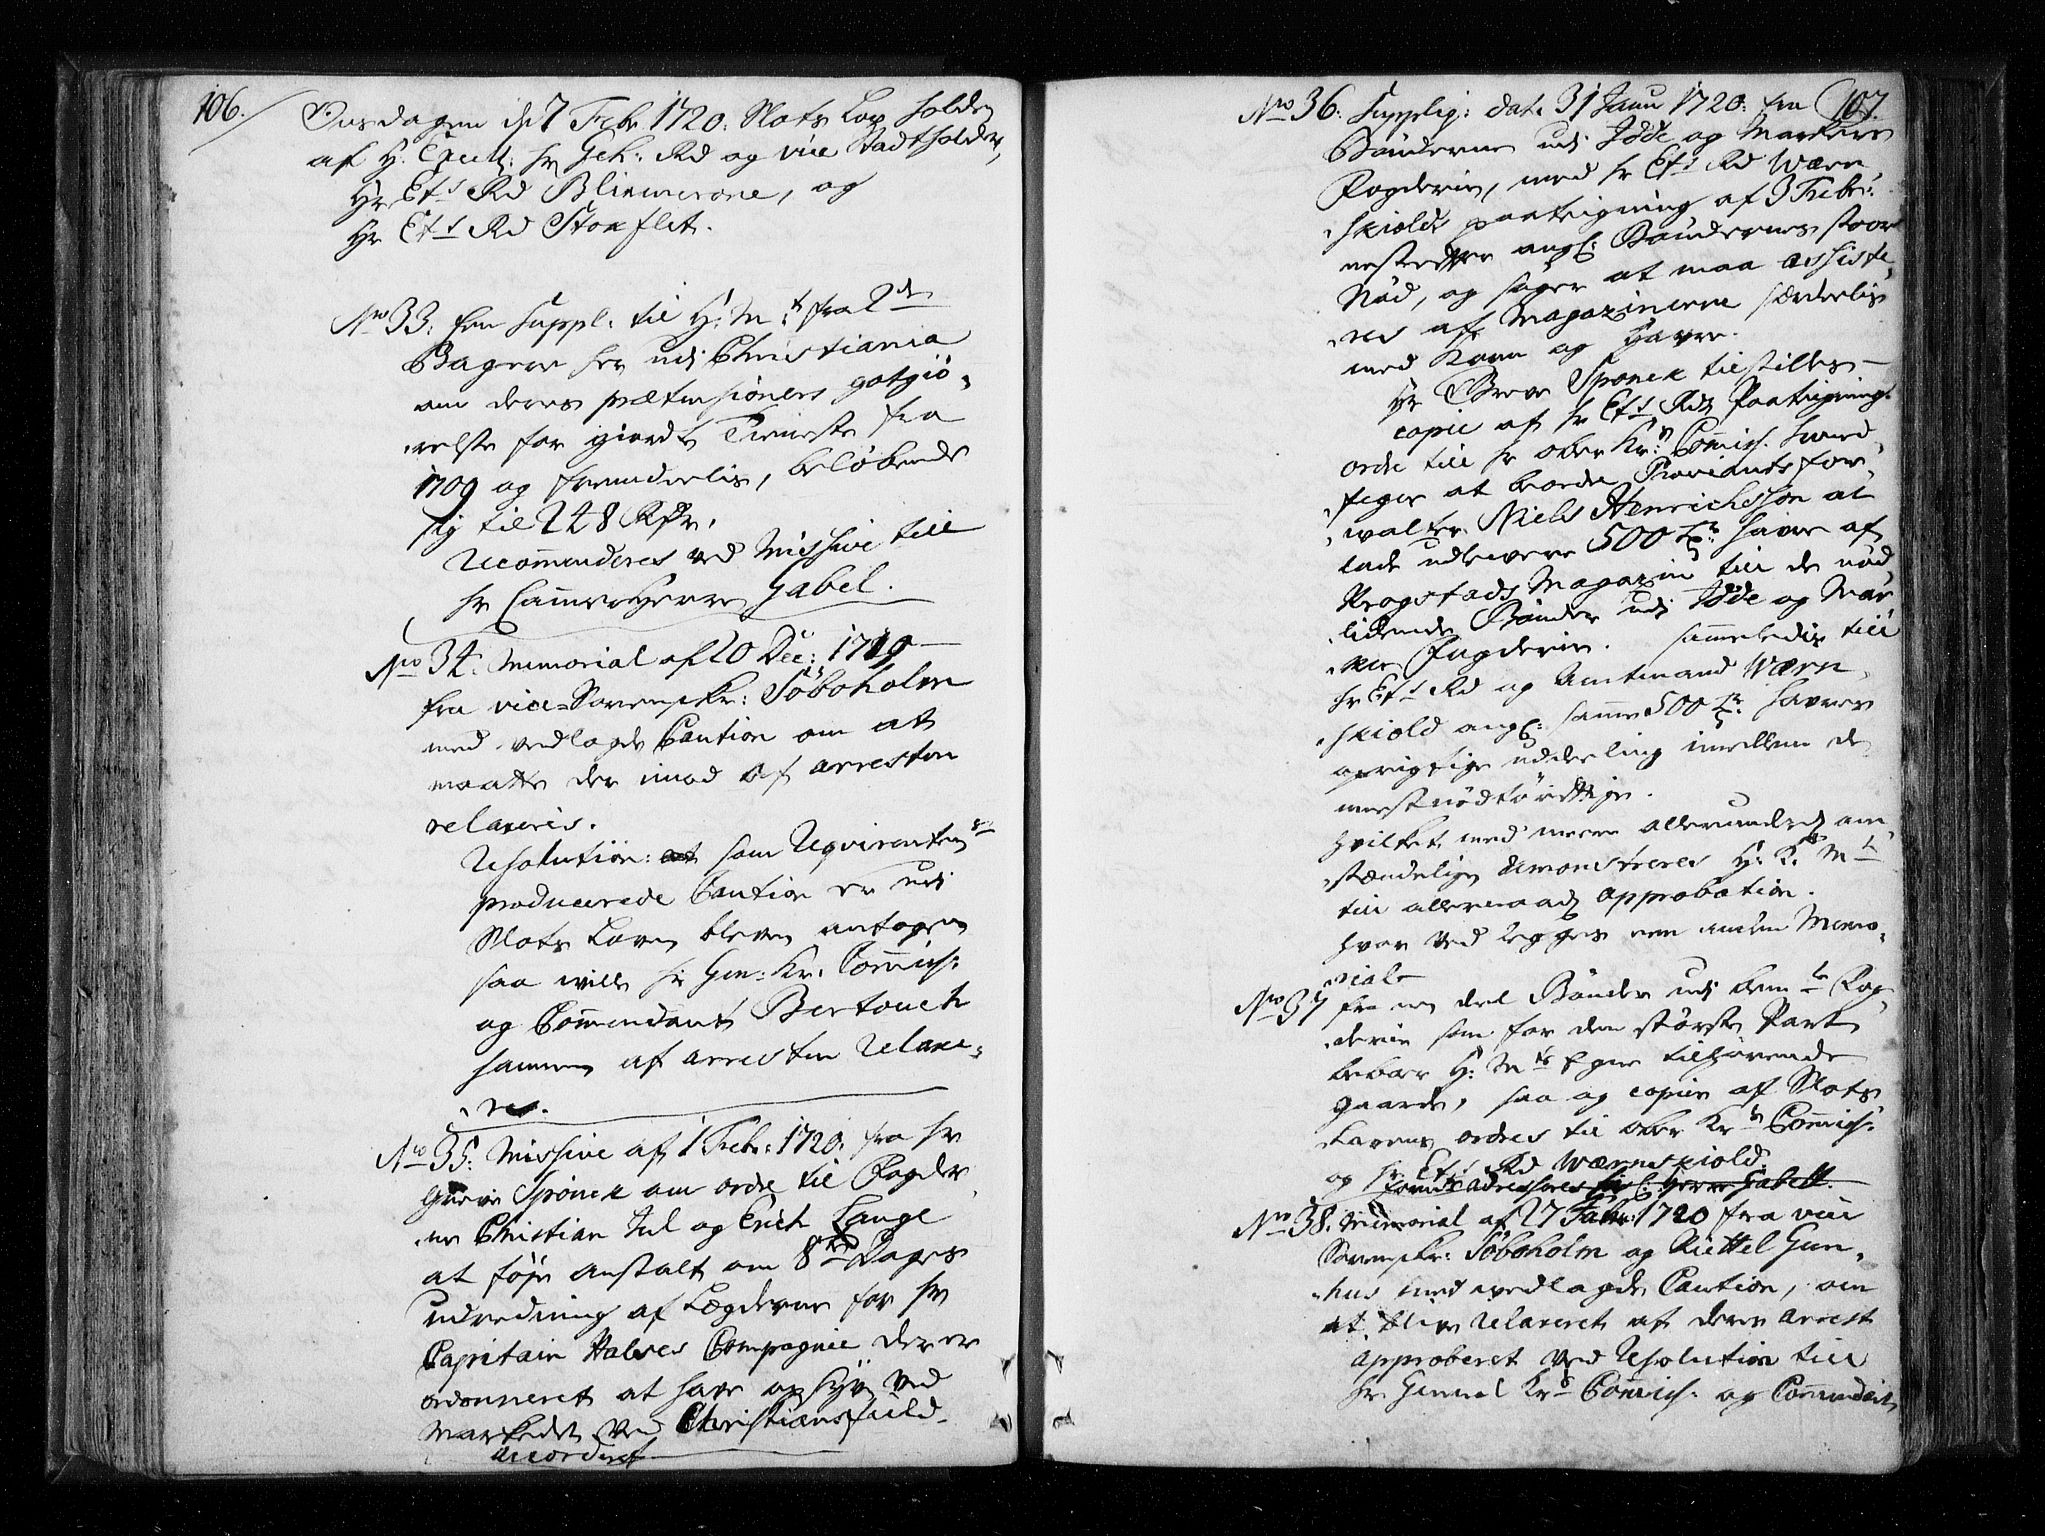 106.
Onsdagen d 7 Febr 1720. Slots Lov holden
af H. Excell: hr Geh: Rd og vice Stadtholder,
Hr Ets Rd Blixencrone, og
Hr Ets Rd Stoxflet.
No 33. fra Suppl: til H: Mt fra 2de
Bagere her udj Christiania
om deres prætensioners gotgiö-
relse for giorde Tieneste fra
1709 og fremdelis, belöbende
sig til 248 Rdr.
Recommenderes ved Missive till
hr Cammerherre Gabel.
No 34. Memorial af 20 Dec: 1719
fra vice-Sorenskr: Söboholm
med vedlagde Caution om at
maatte der imod af arresten
relaxeris.
Resolution: som Reqvirentens
producerede Caution er udj
Slots Loven bleven antagen
saa wille hr Gen: Kr: Commiss:
og Commendant Bertouch
hannem af arresten relaxe-
res.
No 35. Missive af 1 Febr: 1720. fra hr
Greve Sponek om ordre til Fogder-
ne Christian Jul og Erich Lange
at föje anstalt om 8te Dages
udredning af Lægderne for hr
Capitain Compagnie der er
ordonneret at have ved
Markedet ved Christiansfield
accorderet
107.
No 36. Supplig: dat. 31 Janu 1720. fra
Bönderne udj Idde og Markers
Fogderie, med hr Ets Rd Wærn-
skiolds paategning af 3 Febr:
nestefter angl: Böndernes stoore
Nöd, og söger at maa assiste-
res af Magazinerne særdelis
med Korn og Havre.
Hr Greve Sponek tilstilles
copie af hr Ets Rds Paategning
ordre till hr ober Kr: Commiss.
at beordre Proviantsfor-
walter Niels Henrichsson at
lade udlevere 500 Tr: havre af
Krogstads Magazin till de nöd-
lidende Bönder udj Idde og Mar-
ker Fogderie. sammeledis till
hr Ets Rd og Amtmand Wærn-
skiold angl: samme 500 Tr: havres
oprigtige uddeling imellem de
meest nödtörftige.
hvilket med meere allerunderd om-
stændelig demonstreres H: K: Mt
till allernaad approbation.
hvor ved legges een anden Memo-
rial
No 37 fra en deel Bönder udj bemte Fog-
derie som for den störste Part
beboer H: Mts Egne tilhörende
gaarde, saa og copier af Slots
Lovens ordres til ober Krs Commiss:
og hr Ets Rd Wærnskiold.
adresseres Herre Gabell.
No 38. Memorial af 27 1720 fra vice
Sorenskr: Söboholm og Kiettel Gun-
hus med vedlagde Caution, om
at blive relaxeret af deres arrest
approberet ved Resolution till
hr General Krs Commiss: og Commendant